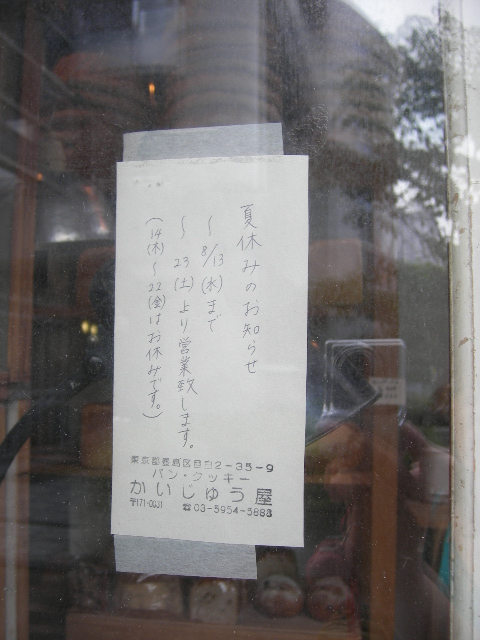 夏休みのお知らせ
〜8/13(水)まで
〜23(土)より営業致します。
(14(木)〜22(金)はお休みです。)
東京都豊島区目白2-35-9
パン・クッキー
かいじゅう屋
〒171-0031 ☎03-5954-3888